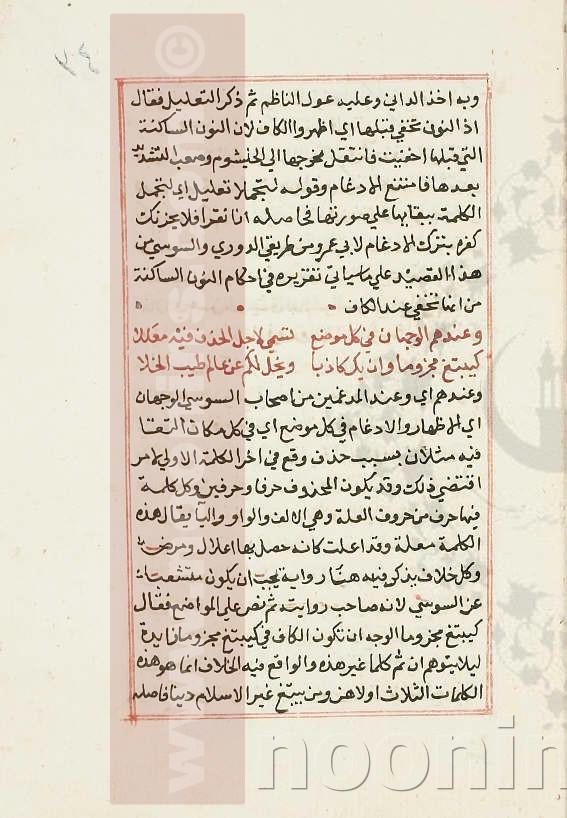 وبه اخذ الداني وعليه عول الناظم ثم ذكر التعليل فقال
اذ النون تخفي قبلها اي اظهروا الكاف لان النون الساكنة
التي قبلها اخفيت فانتقل مخرجها الي الخيشوم وصعب التشديد
بعدها فامتنع الادغام وقوله لتجملا تعليل اي لتجمل
الكلمة ببقايها علي صورتها فحاصله انا نقرا فلا يحزنك
كفره بترك الادغام لابي عمرو من طريقي الدوري والسوسي من
هذا القصيد علي ماسياتي تقريره في احكام النون الساكنة
من انها تخفي عند الكاف
وعندهم الوجهان في كل موضع لتسمي لاجل الحذف فيه معللا
كيبتغ مجزوما وان يك كاذبا ويخل لكم عن عالم طيب الخلا
وعندهم اي وعند المدغمين من اصحاب السوسي الوجهان
اي الاظهار والادغام في كل موضع اي في كل مكان التقا
فيه مثلان بسبب حذف وقع في اخر الكلمة الاولي لامر
اقتضي ذلك وقد يكون المحذوف حرفا وحرفين وكل كلمة
فيها حرف من حروف العلة وهي الالف والواو واليا يقال هذه
الكلمة معلة وقد اعلت كانه حصل بها اعلال ومرض
وكل خلاف يذكر فيه هنا رواية يجب ان يكون متشعبا
عن السوسي لانه صاحب روايته ثم نص علي المواضع فقال
كيبتغ مجزوما الوجه ان تكون الكاف في كيبتغ مجزوما زايدة
ليلا يتوهم ان ثم كلما غير هذه والواقع فيه الخلاف انما هو هذه
الكلمات الثلاث اولاهن ومن يبتغ غير الاسلام دينا فاصله
noonin